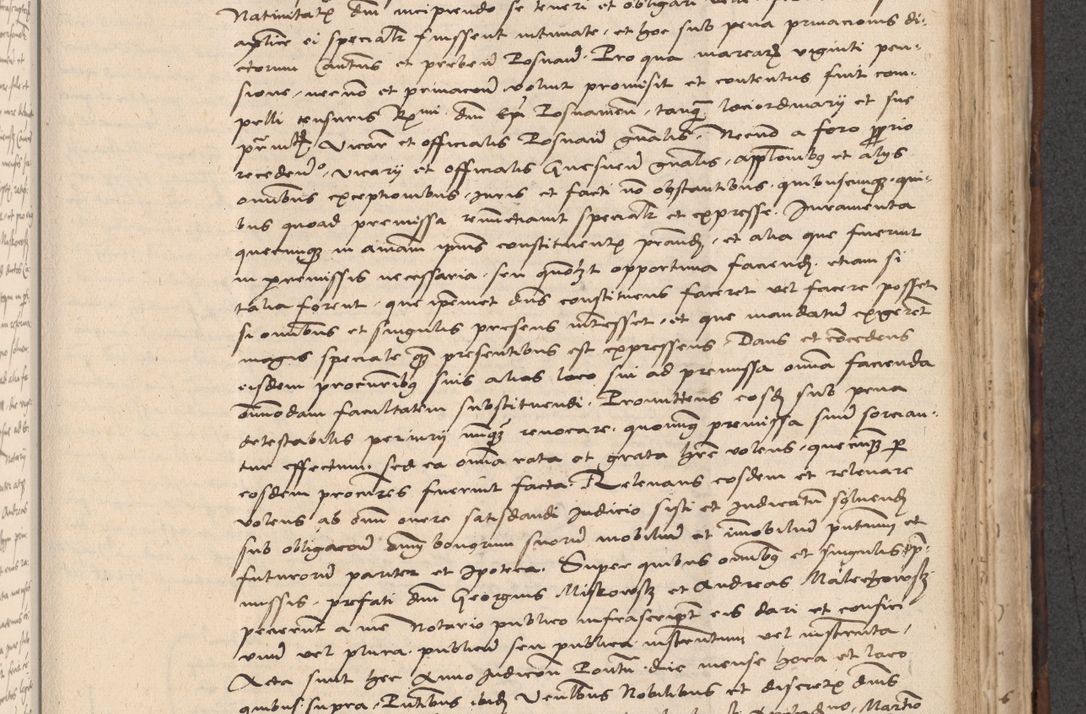 Nativitatis dni incipiendo se teneri et obligari
aplice ei specialr fuissent intimate, et hoc sub pena privacionis di-
ctorum Cantus et prebend Posnan. Pro qua marcar viginti pen-
sione, necno et privacion voluit promisit et contentus fuit com-
pelli censuris Rmi dni Epi Posnanien, tanq loci ordinarij et sue
Vicarii et officialis Posnan gnalis. Necno a foro pprio
recedend, Vicarij et officialis Gnesnen gnalis, applonibq et alijs
omnibus exceptionibus, Juris et facti no obstantibus, quibuscunq, qui-
bus quoad premissa renunctiavit specialr et expresse. Juramenta
quecunq in animam ipius constituentis prandi, et alia que fuerint
in premissis necessaria, seu opportuna faciendi, etiam si
talia forent, que ipemet dns constituens faceret vel facere posset
si omnibus et singulis presens interesset, et que mandatum exigeret
magis speciale q presentibus est expressens Dans et concedens
eisdem procuribq suis alias loco sui ad premissa omia facienda
omnimodam facultatem substituendi. Promittens eosd sub pena
detestabilis periurij nunq revocare, quominq premissa suum sorcian-
tur effectum, sed ea omia rata et grata here volens, quecunq per
eosdem procures fuerint facta. Relevans eosdem et relevare
volens ab omni onere satisdandi Judicio sisti et Judicatum solvendi
sub obligacon omi bonorum suorum mobilium et imobilium pntium et
futurorum pariter et Ipoteca. Super quibus omnibq et singulis p-
missis, prefati dni Georgius Miskowski et Andreas Malechowski
pecierunt a me Notario publico infrascript eis dari et confici
unum vel plura, publicum seu publica instrumentum vel instrumenta,
Acta sunt hec Anno Judicion Pontu die mense hora et loco
quibus supra, Pntibus ibid Venlibus Nobilibus et discretis dnis
Martino